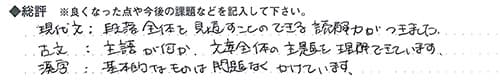 ◆総評 ※良くなった点や今後の課題などを記入して下さい。
現代文：段落全体を見通すことのできる読解力がつきました。
古文：主語が何か、文章全体の主題を理解できています。
漢字：基本的なものは問題なくかけています。